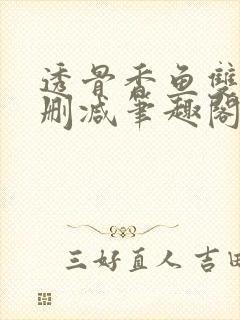 透骨香鱼雙
删减筆趣閣
三好直人 吉田